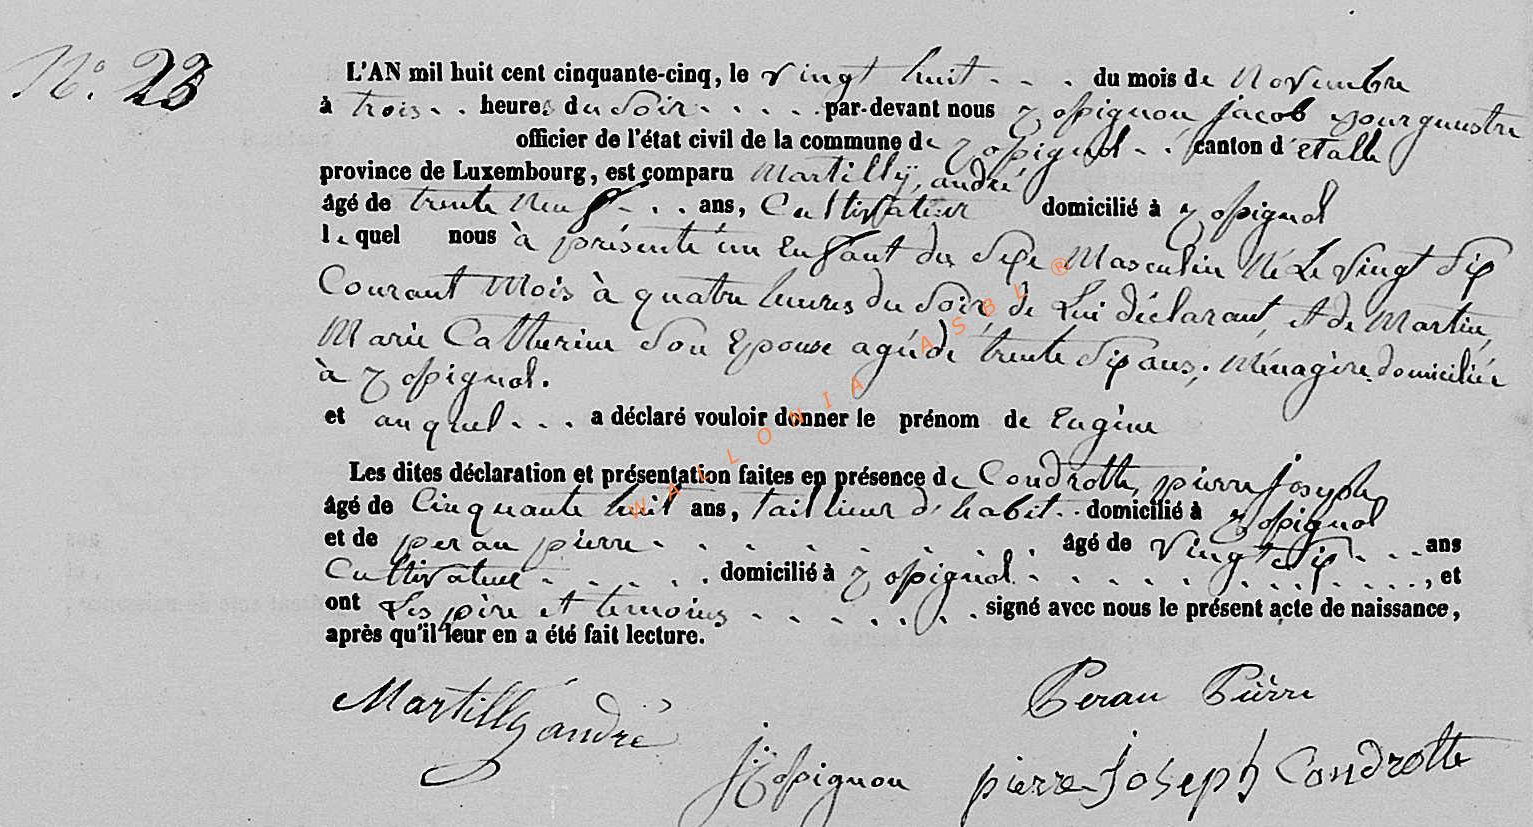 N° 23
L'AN mil huit cent cinquante-cinq, le vingt huit - - . du mois de Novembre
à trois - . heures du Soir . . . . . par-devant nous hopignon jacob bourguestre
officier de l'état civil de la commune de hopignol - . canton d'etalle
province de Luxembourg, est comparu Martilly, andré
âgé de trente neuf - . . ans, Cultivateur domicilié à hopignol
lequel nous à présenté un Enfant du Sexe Masculin Né Le vingt Six
Courant Mois à quatre heures du Soir, de Lui déclarant, et de Martin,
Marie Catherine Son Epouse agée de trente Six ans, Ménagère domiciliée
à hopignol.
et auquel - . . a déclaré vouloir donner le prénom de Eugène
Les dites déclaration et présentation faites en présence de Condrotte, pierre Joseph
âgé de Cinquante huit ans, taillieur d'habit . . domicilié à hopignol
et de perau pierre - . . . . . . . . âgé de vingt Six - . . ans
Cultivateur - . . . . . domicilié à hopignol . . . . . . . . . ., et
ont Les père et temoins - . . . . . signé avec nous le présent acte de naissance,
après qu'il leur en a été fait lecture.
Martilly andré
Perau Pierre
J hopignon
pierre Joseph Condrotte
WALLONIA ASBL ®